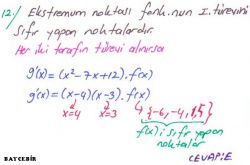 12-) Ekstremum noktası fonk.nun I. türevini
sıfır yapan noktalardır.
Her iki tarafın türevi alınırsa
g'(x) = (x²-7x+12).f(x)
g'(x) = (x-4)(x-3).f(x)
x=4 x=3 {-6,-4,1,5}
f(x)i sıfır yapan
noktalar
CEVAP: E
BATCEBİR